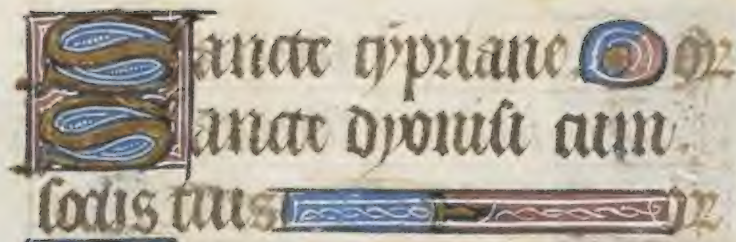 Sancte cypriane or
Sancte dyonisi cum
sociis tuis or